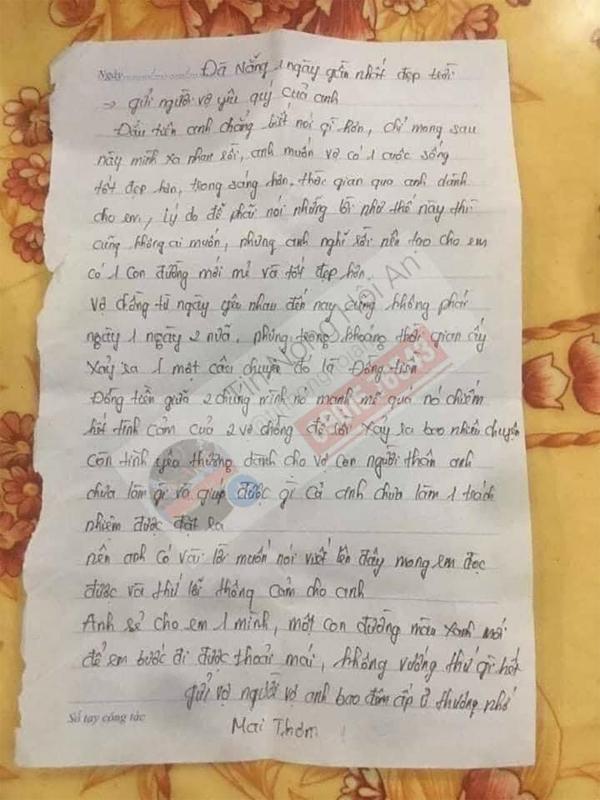 Ngày Đà Nẵng 1 ngày gần nhất đẹp trời
→ gửi người vợ yêu quý của anh
Đầu tiên anh chẳng biết nói gì hơn, chỉ mong sau
này mình xa nhau rồi, anh muốn vợ có 1 cuộc sống
tốt đẹp hơn, trong sáng hơn, thời gian qua anh dành
cho em, lý do để phải nói những lời như thế này thì
cũng không ai muốn, nhưng anh nghĩ rồi nên tạo cho em
có 1 con đường mới mẻ và tốt đẹp hơn.
Vợ chồng từ ngày yêu nhau đến nay cũng không phải
ngày 1 ngày 2 nữa, nhưng trong khoảng thời gian ấy
xảy ra 1 một câu chuyện đó là Đồng tiền
Đồng tiền giữa 2 chúng mình nó mạnh mẽ quá nó chiếm
hết tình cảm của 2 vợ chồng để rồi xảy ra bao nhiêu chuyện
còn tình yêu thương dành cho vợ con người thân anh
chưa làm gì và giúp được gì cả anh chưa làm 1 trách
nhiệm được đặt ra
nên anh có vài lời muốn nói viết lên đây mong em đọc
được và thứ lỗi thông cảm cho anh
Anh sẻ cho em 1 mình, một con đường màu xanh mới
để em bước đi được thoải mái, không vướng thứ gì hết
gửi vợ người vợ anh bao đêm ấp ủ thương nhớ
Mai Thơm
Sổ tay công tác
Tin Nóng Hội An